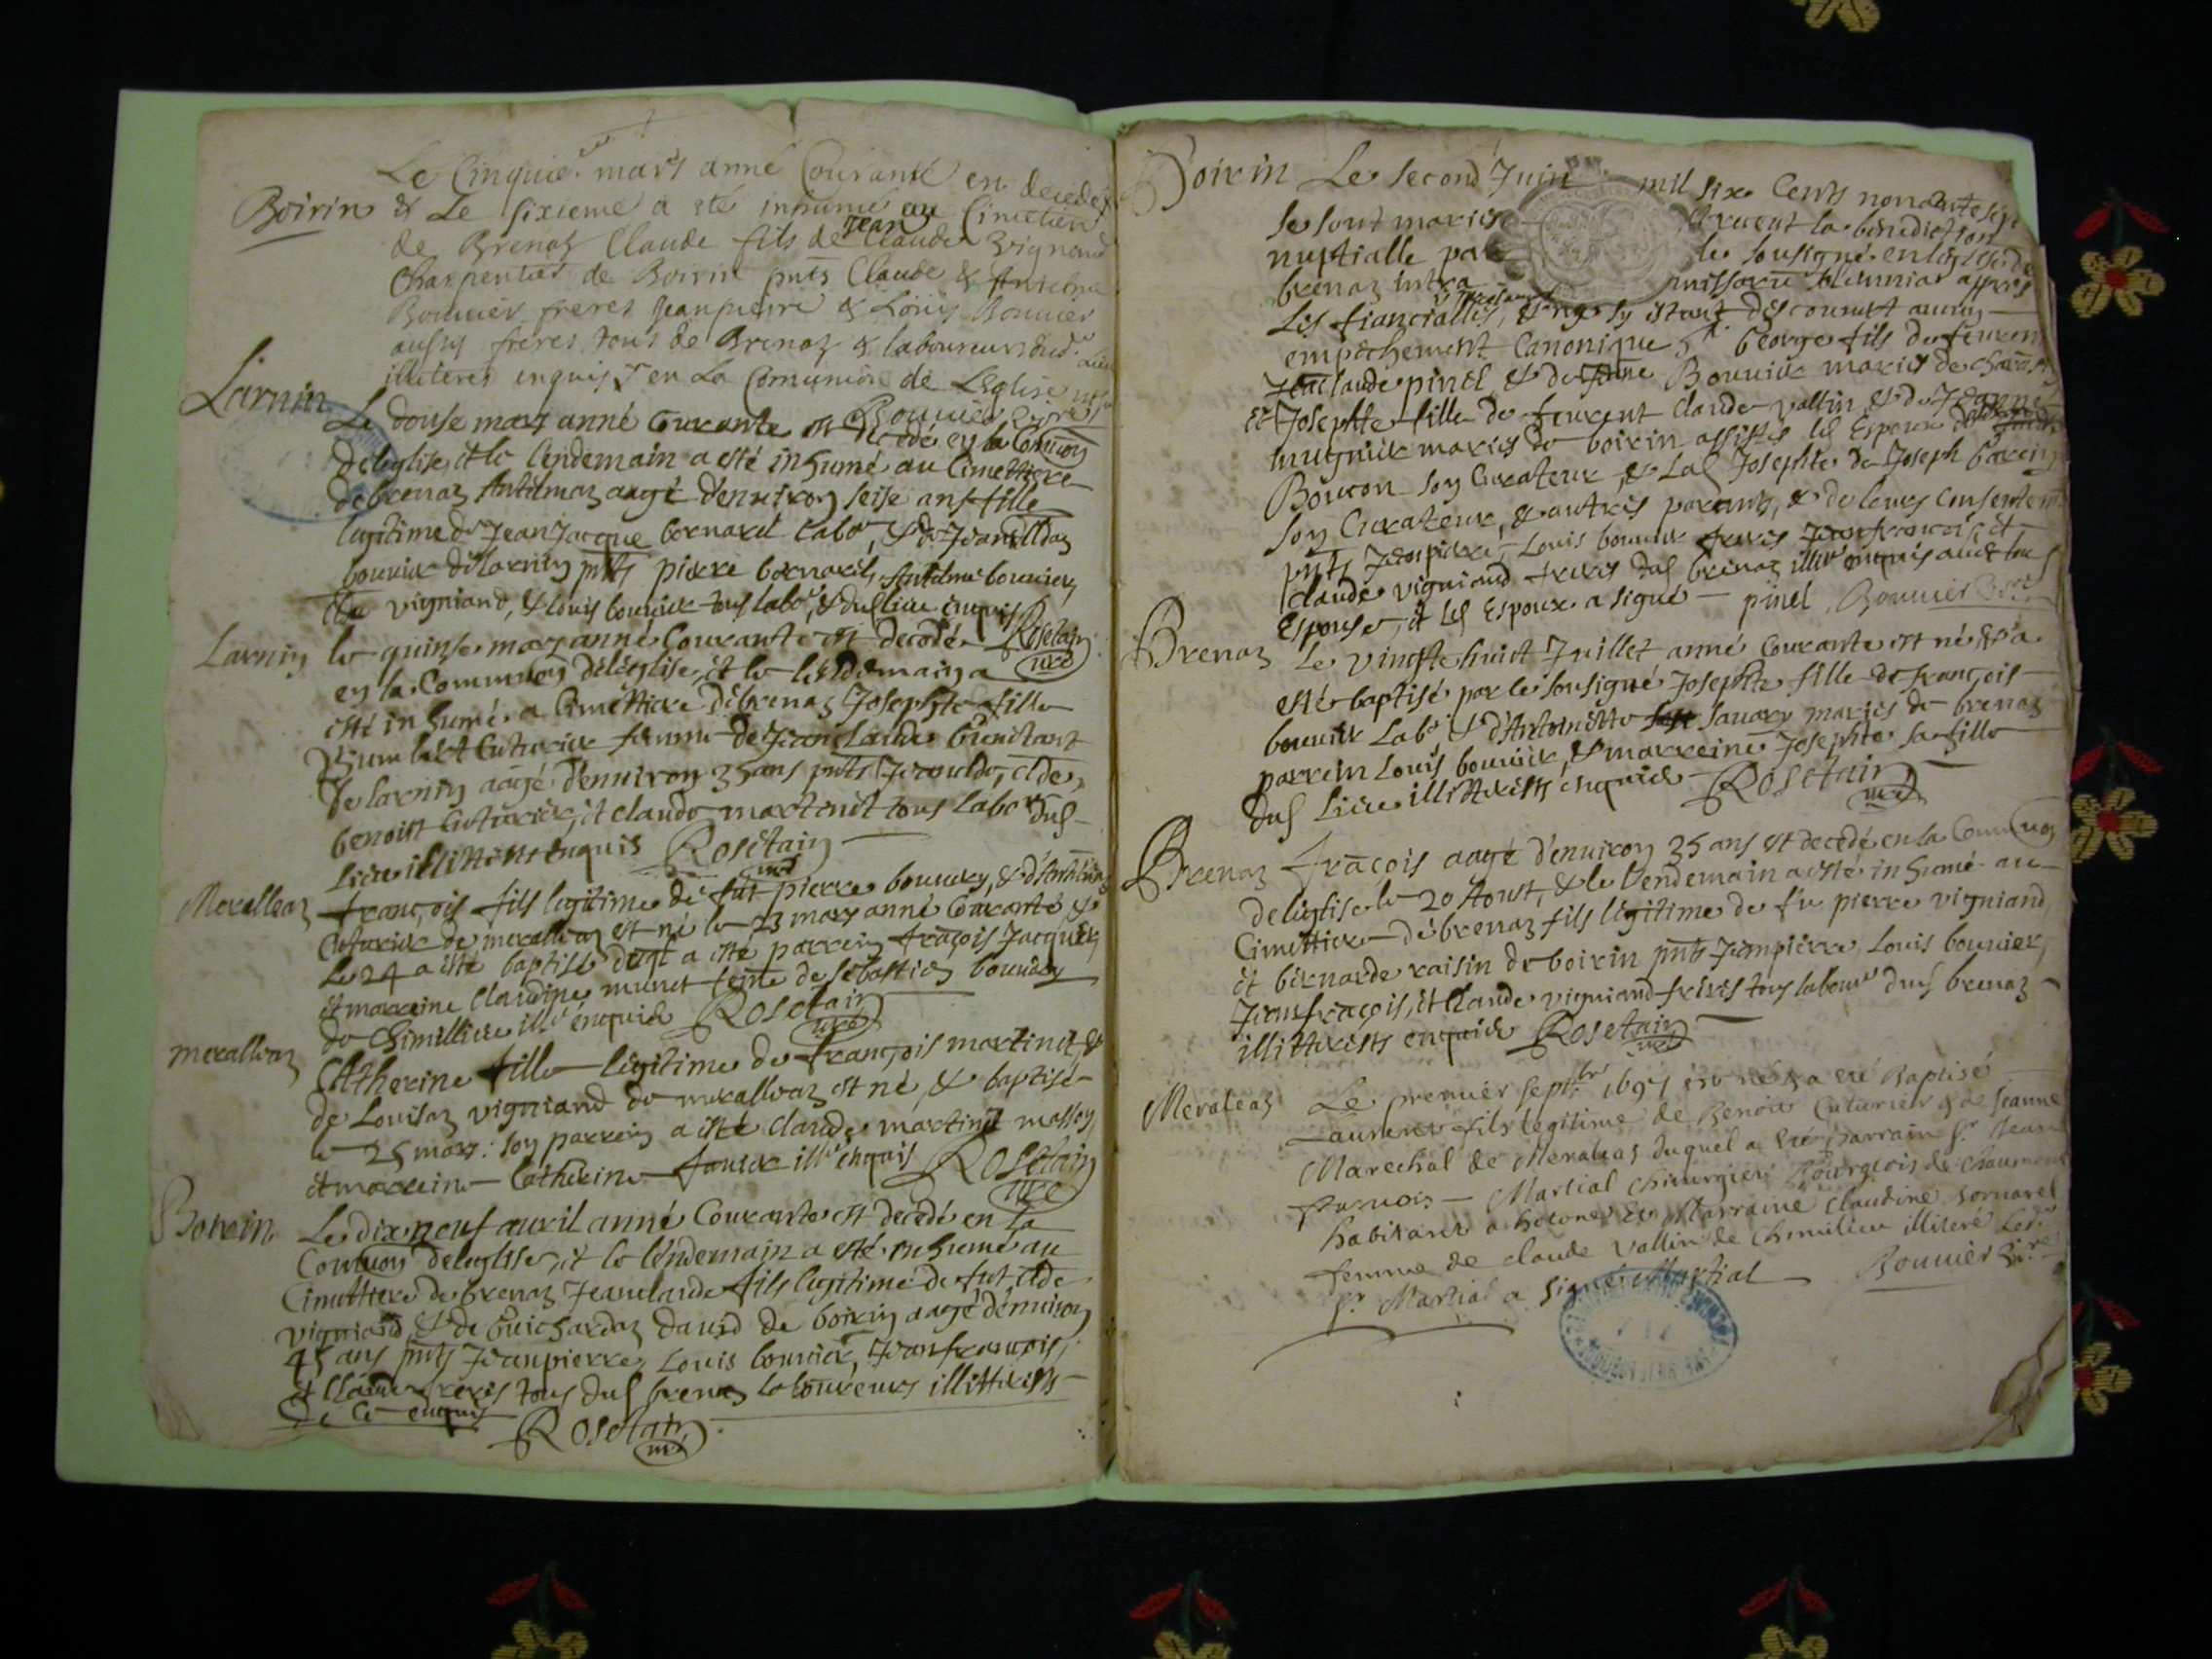 Le Cinquie. mars anné Courante en decedé
Boirin & Le sixieme a eté inhumé au Cimetiere
de Brenaz Claude fils de Jean Claude vignand
Charpentier de Boirin pnts Claude & Antelme
Bouuier freres Jeanpierre & Loüis Bouuier
aussy freres tous de Brenaz & laboureurs dud. lieu
illiteres enquis en La Comunion de L'Eglise
Bouuier
Larnin Le douse mars anné Courante est decedé en la Comuon
deleglise, et le lendemain a esté inhumé au Cimettiere
debrenaz Antelmaz aagé denuiron seise ans fille
legitime de Jean Jacque bornard Labor, & de Jeanclldaz
bouuier de larnin pnts pierre bornard, Antelme bouuier,
Cde vigniand, & louis bouuier tous labor, & dud lieu enquis
Rosetain
Larnin le quinse mars anné Courante est decedé
en la Communion deleglise, et le lendemain a
esté inhumé a Cimettiere debrenaz Josephte fille
d'humbert Cuturier femme de Jeanclaude
de larnin aagé denuiron 35 ans pnts Jeancldo, Clde,
benoist Cuturier, et claude martinet tous Labor dud
Lieu illitterés enquis Rosetain
Meralleaz françois fils legitime de fut pierre bouuier, & d'Anthoina
Cuturier de merallеaz est né le 23 mars anné Courante &
le 24 a esté baptisé duql a esté parrein françois Jacquier
et marreine Claudine munet feme de sebastien bouuier
de Chimillieu illr enquis Rosetain
meralleaz Catherine fille legitime de françois martinet, &
de Louisaz vigniand de merallеaz est né, & baptisé
le 25 mars: son parrein a esté claude martinet massoy
et marreine Catherine illr enquis Rosetain
Boirin Le dix neuf auril anné Courante est decedé en la
Comuon deleglise, et le lendemain a esté inhumé au
Cimettiere de brenaz Jeanclaude fils legitime de fut Clde
vigniand & de Guichardaz dauid de boirin aagé denuiron
45 ans pnts Jeanpierre, Louis bouuier, Jeanfrancois,
et Claude freres tous dud brenaz laboureurs illitterés
de Ce enquis
Rosetain
Boirin Le second Juin mil six Cents nonante sept
se sont mariés la benediction
nuptialle par le sousigné en leglise de
brenaz intra missarum solemnia appres
Les fiancialles, & ne sy estant descouuert aucun
empeschement Canonique Sr George fils de feurent
Jeanclaude pinel & de Jeanne Bouuier mariés de
et Josephte fille de feurent claude vallin & de Jeanne
mugnier mariés de boirin assistés led Espoux de
Boucon son Curateur, & Lad Josephte de Joseph
son Curateur, & autres parents, & de leurs Consentem
pnts Jeanpierre, Louis bouuier freres Jeanfrancois, et
Claude vigniand freres dud brenaz illr enquis auec lad
Espouse, et led Espoux a signé — pinel Bouuier
Brenaz Le vingte huict Juillet anné Courante est né & a
esté baptisé par le sousigné Josephte fille de françois
bouuier Labor & d'Antoinette Sauary mariés de brenaz
parrein Louis bouuier, & marreine Josephte sa fille
dud Lieu illitterés enquis Rosetain
Brenaz francois aagé denuiron 35 ans est decedé en la Comuon
deleglise le 20 Aoust, & le Lendemain a esté inhumé au
Cimettiere debrenaz fils legitime de fu pierre vigniand,
et bernarde raisin de boirin pnts Jeanpierre, Louis bouuier,
Jeanfracois, et Claude vigniand freres tous labours dud brenaz
illitterés enquis Rosetain
Meraleaz Le premier Septbre 1697 est né & a eté Baptisé
Laurent fils legitime de Benoit Cuturier & de Jeanne
Marechal de Meraleaz duquel a eté parrain Sr Jean
françois — Martial chirurgien Bourgeois de Chaumont
habitant a hotonne & Marraine Claudine bornarel
femme de claude Vallin de Chimilieu illiteré Ledt
Sr Martial a signé Martial Bouuier